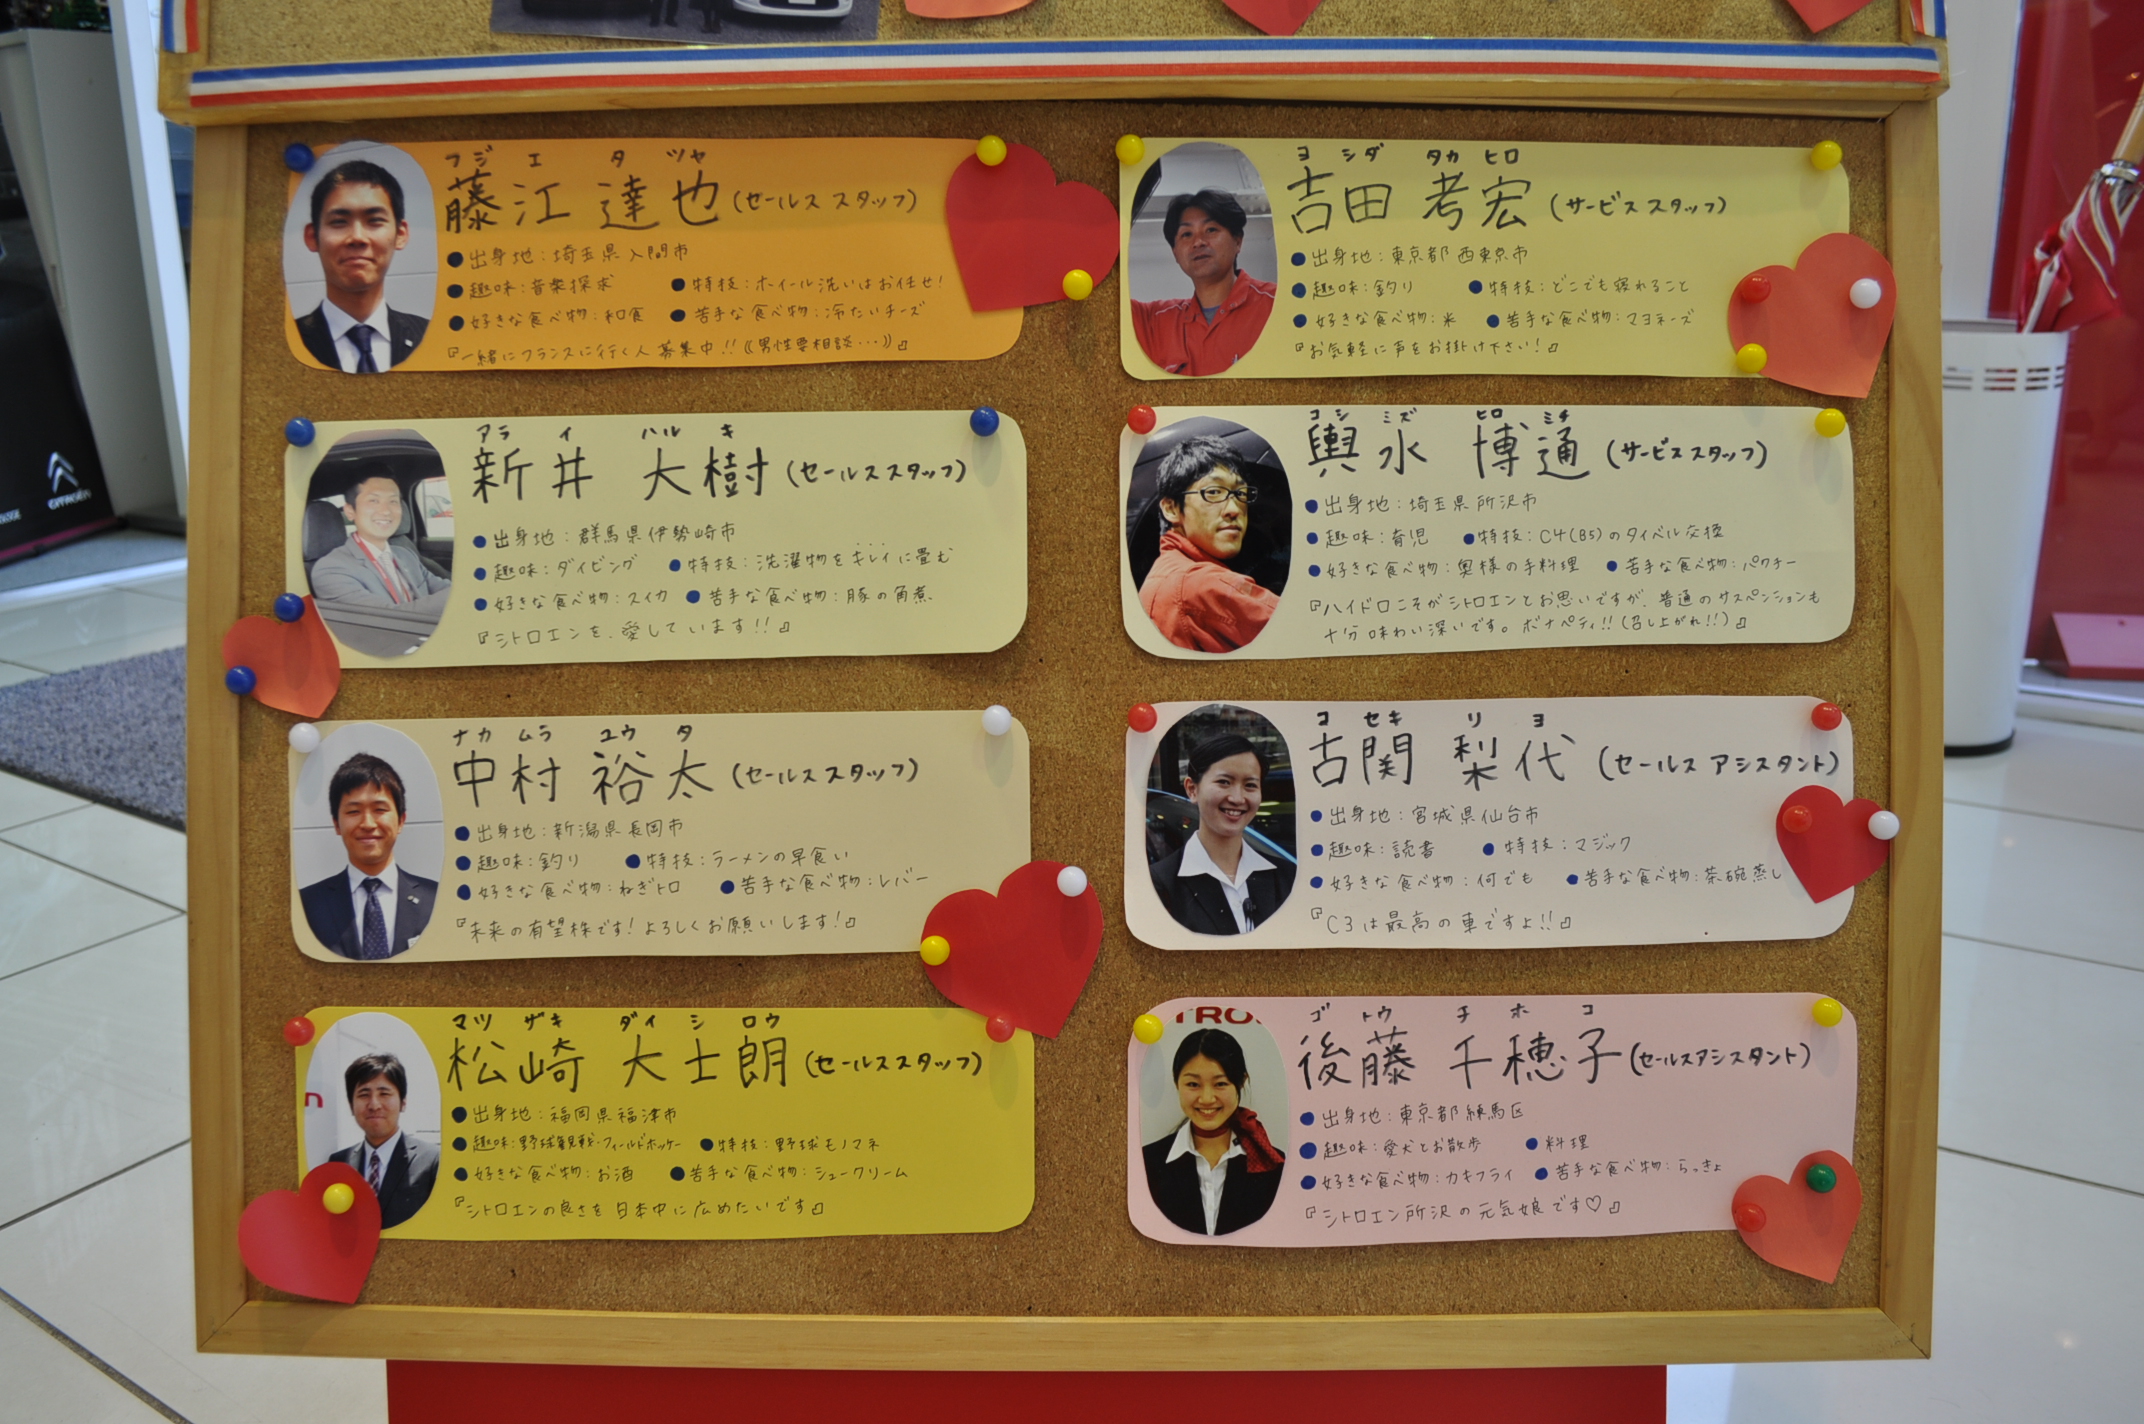 フジ エ タ ツヤ
藤江 達也 (セールススタッフ)
●出身地:埼玉県入間市
●趣味:音楽探求 ●特技:ホイール洗いはお任せ!
●好きな食べ物:和食 ●苦手な食べ物:冷たいチーズ
『一緒にフランスに行く人募集中!!((男性要相談・・・))』
アラ イ ハル キ
新井 大樹 (セールススタッフ)
●出身地:群馬県伊勢崎市
●趣味:ダイビング ●特技:洗濯物をキレイに畳む
●好きな食べ物:スイカ ●苦手な食べ物:豚の角煮
『シトロエンを、愛しています!!』
ナカ ムラ ユウ タ
中村 裕太 (セールススタッフ)
●出身地:新潟県長岡市
●趣味:釣り ●特技:ラーメンの早食い
●好きな食べ物:ねぎトロ ●苦手な食べ物:レバー
『未来の有望株です!よろしくお願いします!』
マツ ザキ ダイ シ ロウ
松崎 大士朗 (セールススタッフ)
●出身地:福岡県福津市
●趣味:野球観戦・フィールドホッケー ●特技:野球モノマネ
●好きな食べ物:お酒 ●苦手な食べ物:シュークリーム
『シトロエンの良さを日本中に広めたいです』
ヨ シダ タカ ヒロ
吉田 考宏 (サービススタッフ)
●出身地:東京都西東京市
●趣味:釣り ●特技:どこでも寝れること
●好きな食べ物:米 ●苦手な食べ物:マヨネーズ
『お気軽に声をお掛け下さい!』
コシ ミズ ヒロ ミチ
輿水 博通 (サービススタッフ)
●出身地:埼玉県所沢市
●趣味:育児 ●特技:C4(B5)のタイベル交換
●好きな食べ物:奥様の手料理 ●苦手な食べ物:パクチー
『ハイドロこそがシトロエンとお思いですが、普通のサスペンションも
十分味わい深いです。ボナペティ!!(召し上がれ!!)』
コ セキ リ ヨ
古関 梨代 (セールスアシスタント)
●出身地:宮城県仙台市
●趣味:読書 ●特技:マジック
●好きな食べ物:何でも ●苦手な食べ物:茶碗蒸し
『C3は最高の車ですよ!!』
ゴ トウ チ ホ コ
後藤 千穂子 (セールスアシスタント)
●出身地:東京都練馬区
●趣味:愛犬とお散歩 ●料理
●好きな食べ物:カキフライ ●苦手な食べ物:らっきょ
『シトロエン所沢の元気娘です♡』
CITROËN